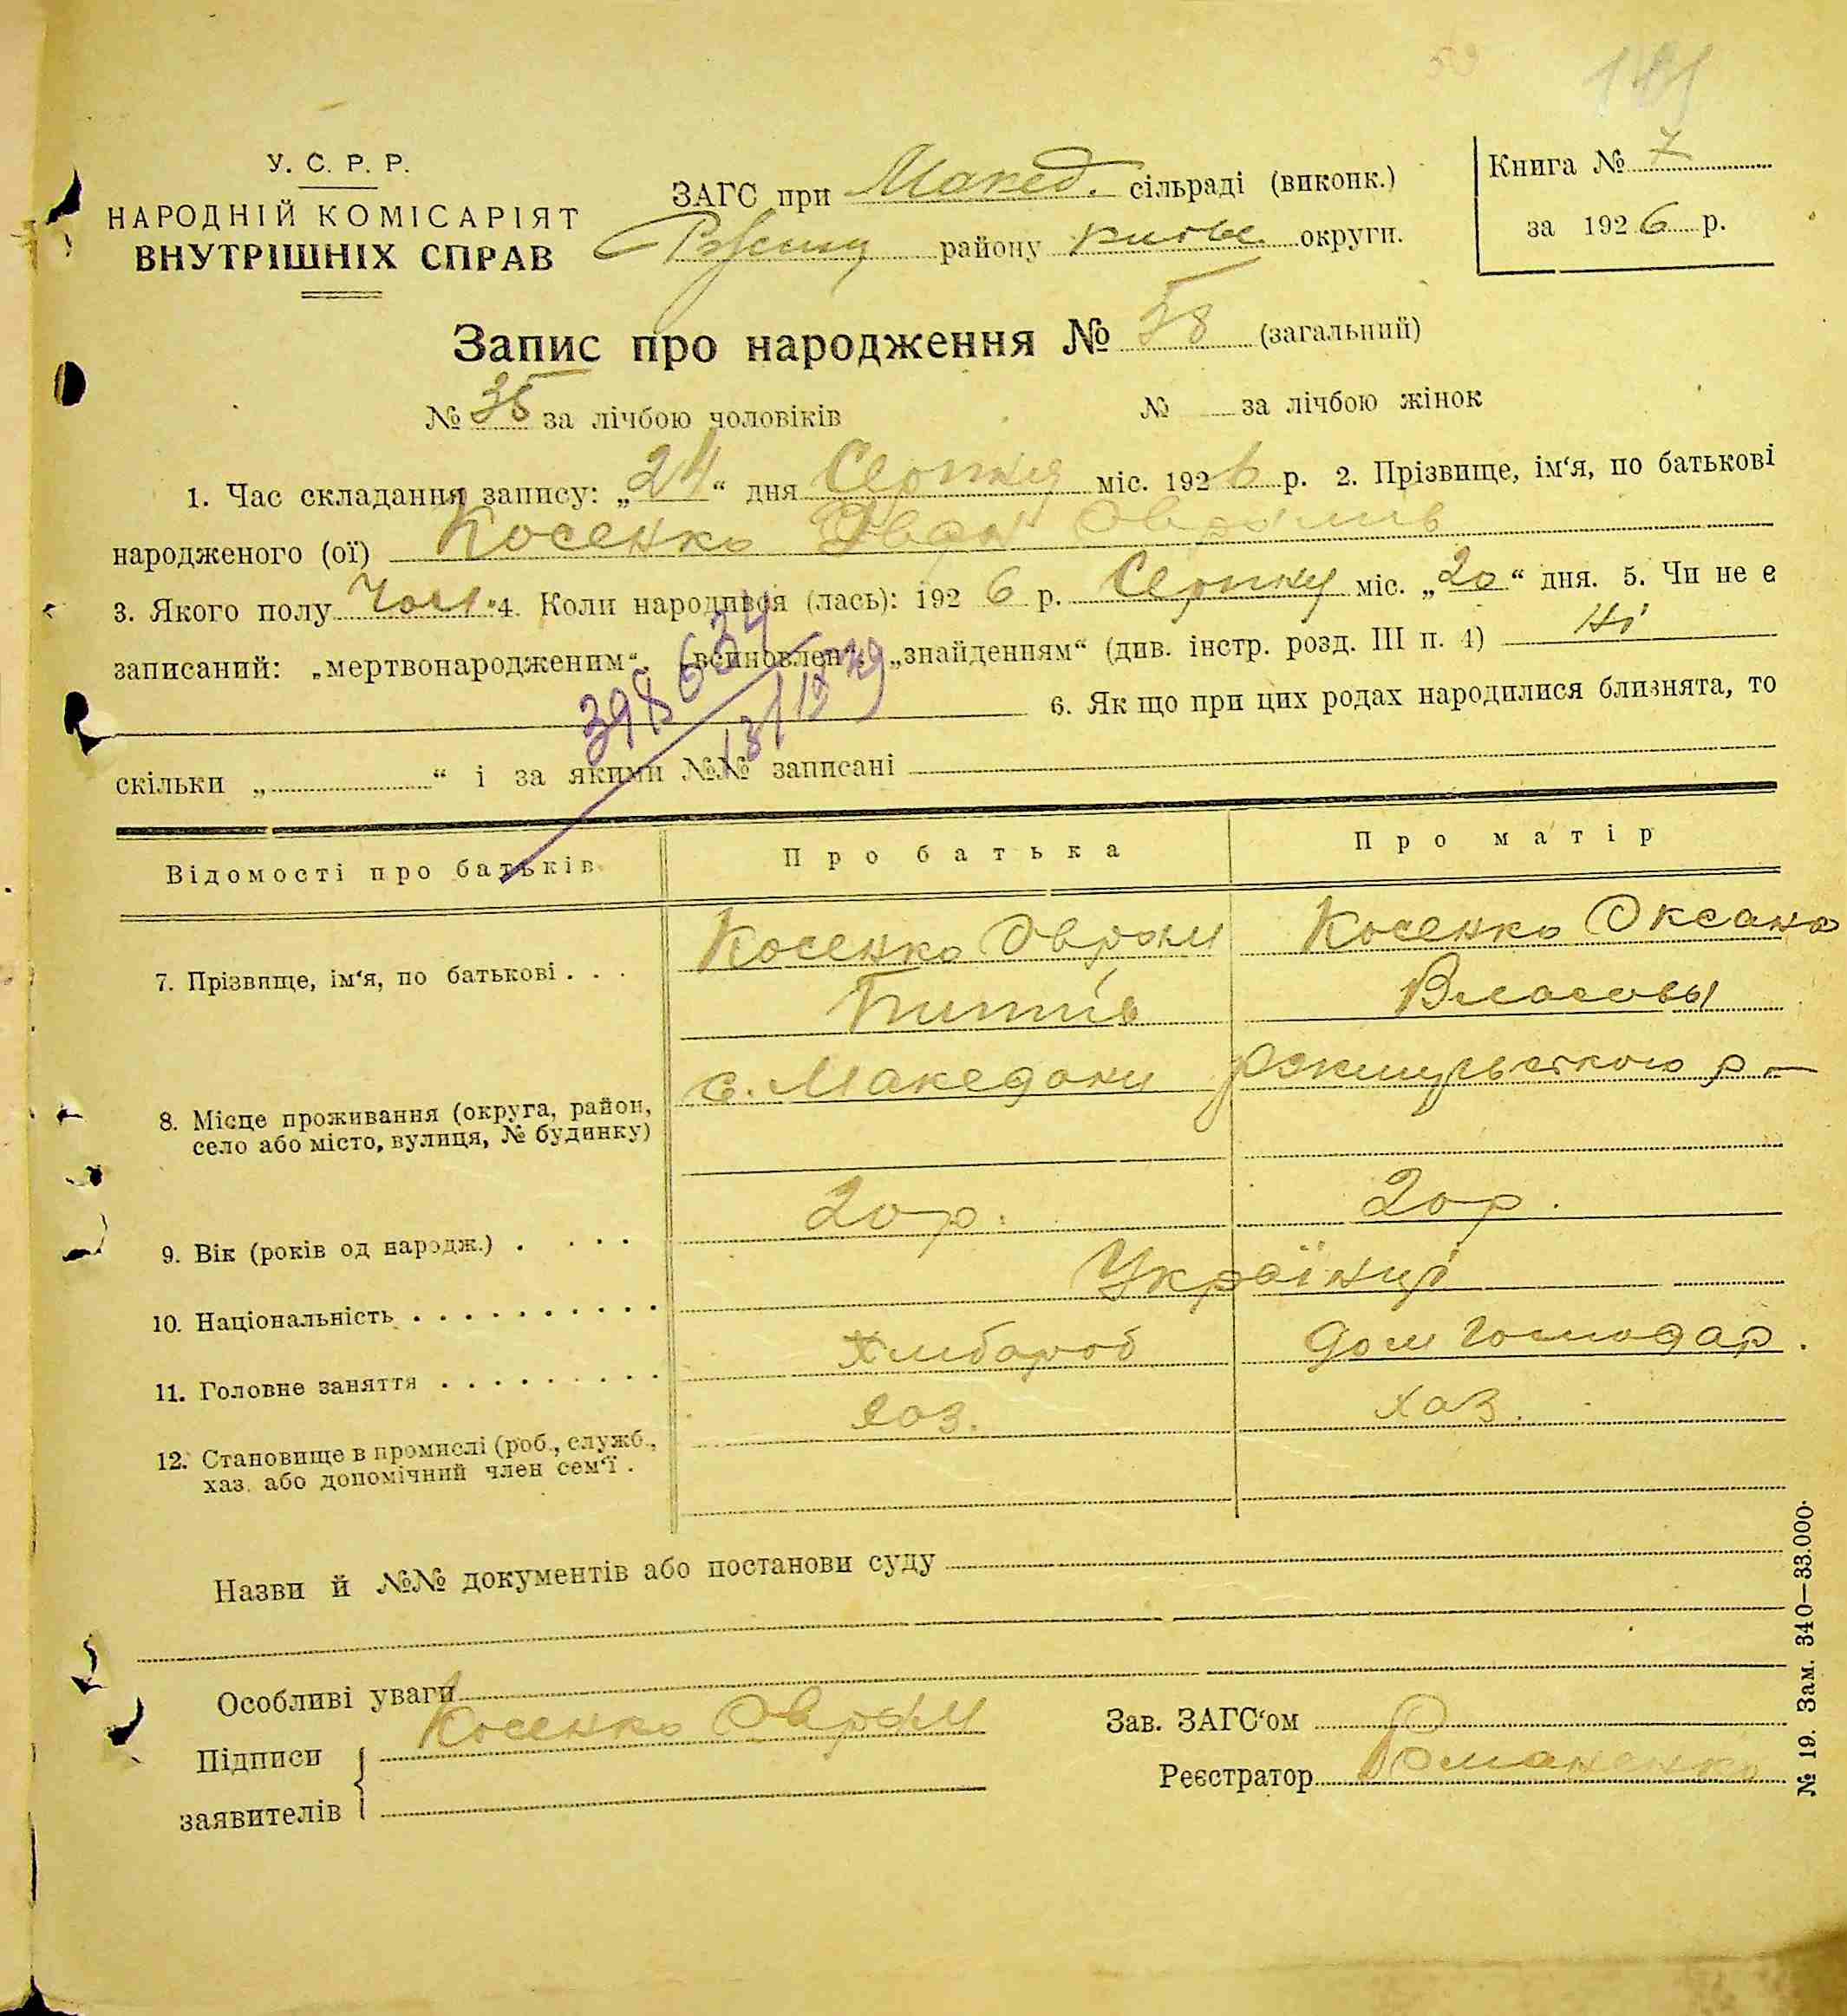 181
У. С. Р. Р.
НАРОДНІЙ КОМІСАРІЯТ
ВНУТРІШНІХ СПРАВ
ЗАГС при Макед. сільраді (виконк.)
району округи.
Книга № 7
за 1926 р.
Запис про народження № 58 (загальний)
№ за лічбою чоловіків
№ за лічбою жінок
1. Час складання запису: „24“ дня Серпня міс. 1926 р. 2. Прізвище, ім‘я, по батькові
народженого (ої) Косенко Іван
3. Якого полу Чол. 4. Коли народився (лась): 1926 р. Серпня міс. „20“ дня. 5. Чи не є
записаний: „мертвонародженим“, „всиновлен“, „знайденням“ (див. інстр. розд. III п. 4) Ні
398634
6. Як що при цих родах народилися близнята, то
скільки „ “ і за якими №№ записані
Відомості про батьків.
Про батька
Про матір
7. Прізвище, ім‘я, по батькові . . .
Косенко Оврам
Титів
Косенко Оксана
Власовы
8. Місце проживання (округа, район,
село або місто, вулиця, № будинку)
с. Македони
9. Вік (років од народж.) . . . .
20 р.
20 р.
10. Національність . . . . . . . . . .
Українці
11. Головне заняття . . . . . . . . .
Хлібароб
Дом Господар.
12. Становище в промислі (роб., служб.,
хаз. або допомічний член сем‘ї .
хаз.
хаз.
Назви й №№ документів або постанови суду
Особливі уваги
Підписи
заявителів
Косенко Оврам
Зав. ЗАГС‘ом
Реєстратор Романенко
№ 19. Зам. 340—33.000.